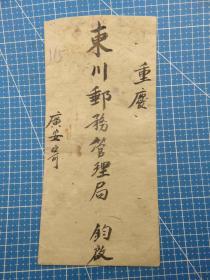 重慶
東川郵務管理局 鈞啟
廣安寄